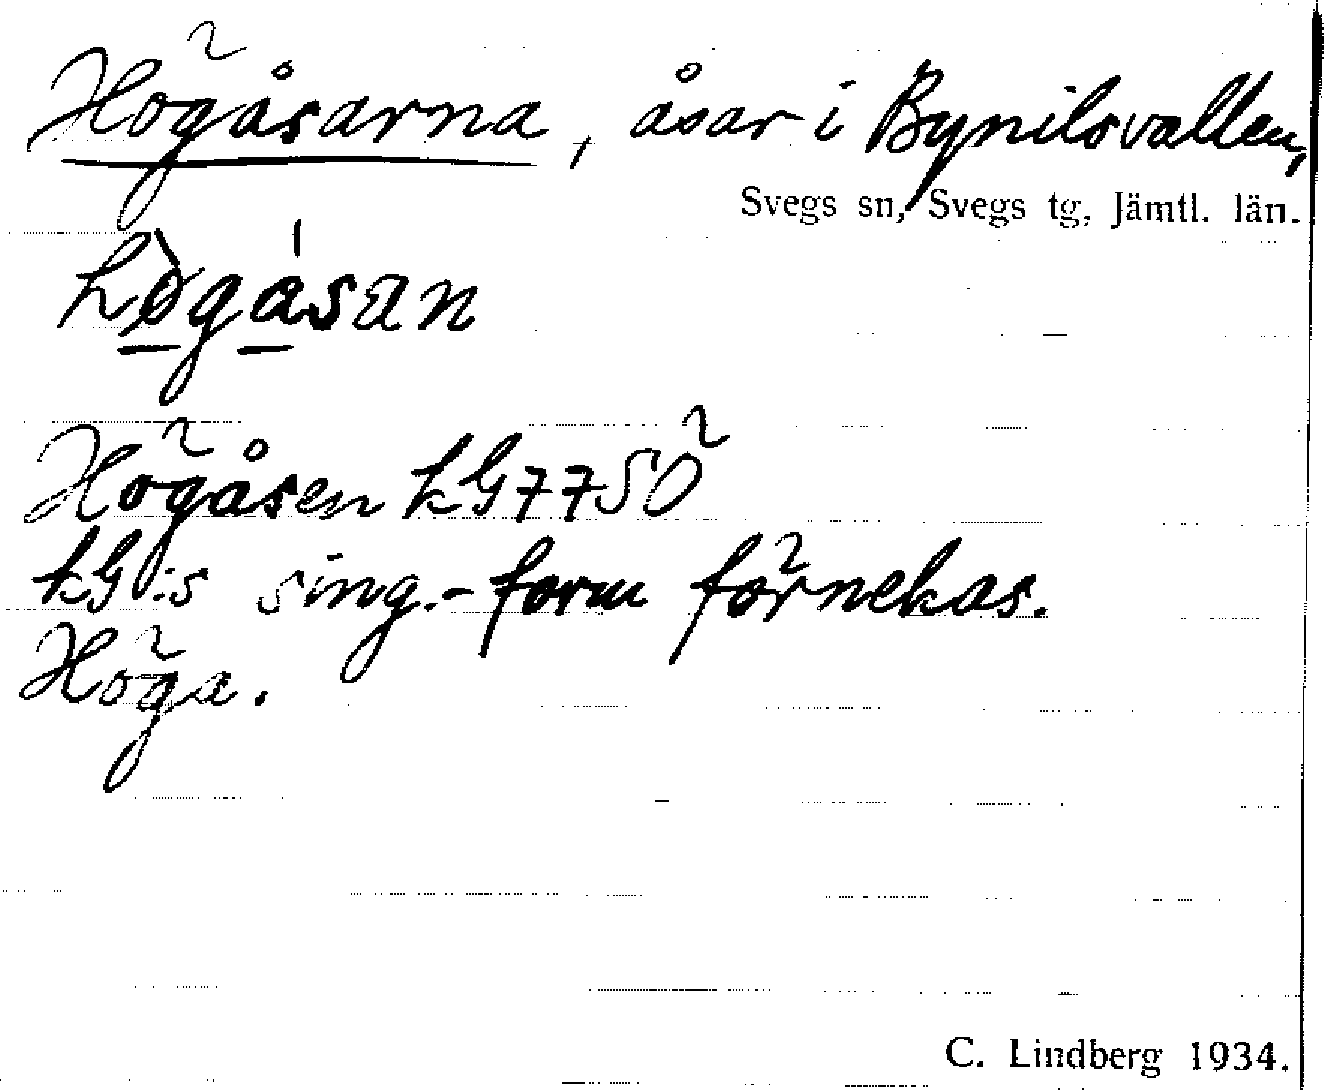 Högåsarna, åsar i Bynilsvallen,
Svegs sn, Svegs tg, Jämtl. län.
hògåsan
Högåsen kG77SÖ
kG:s sing.-form förnekas.
Höga.
C. Lindberg 1934.